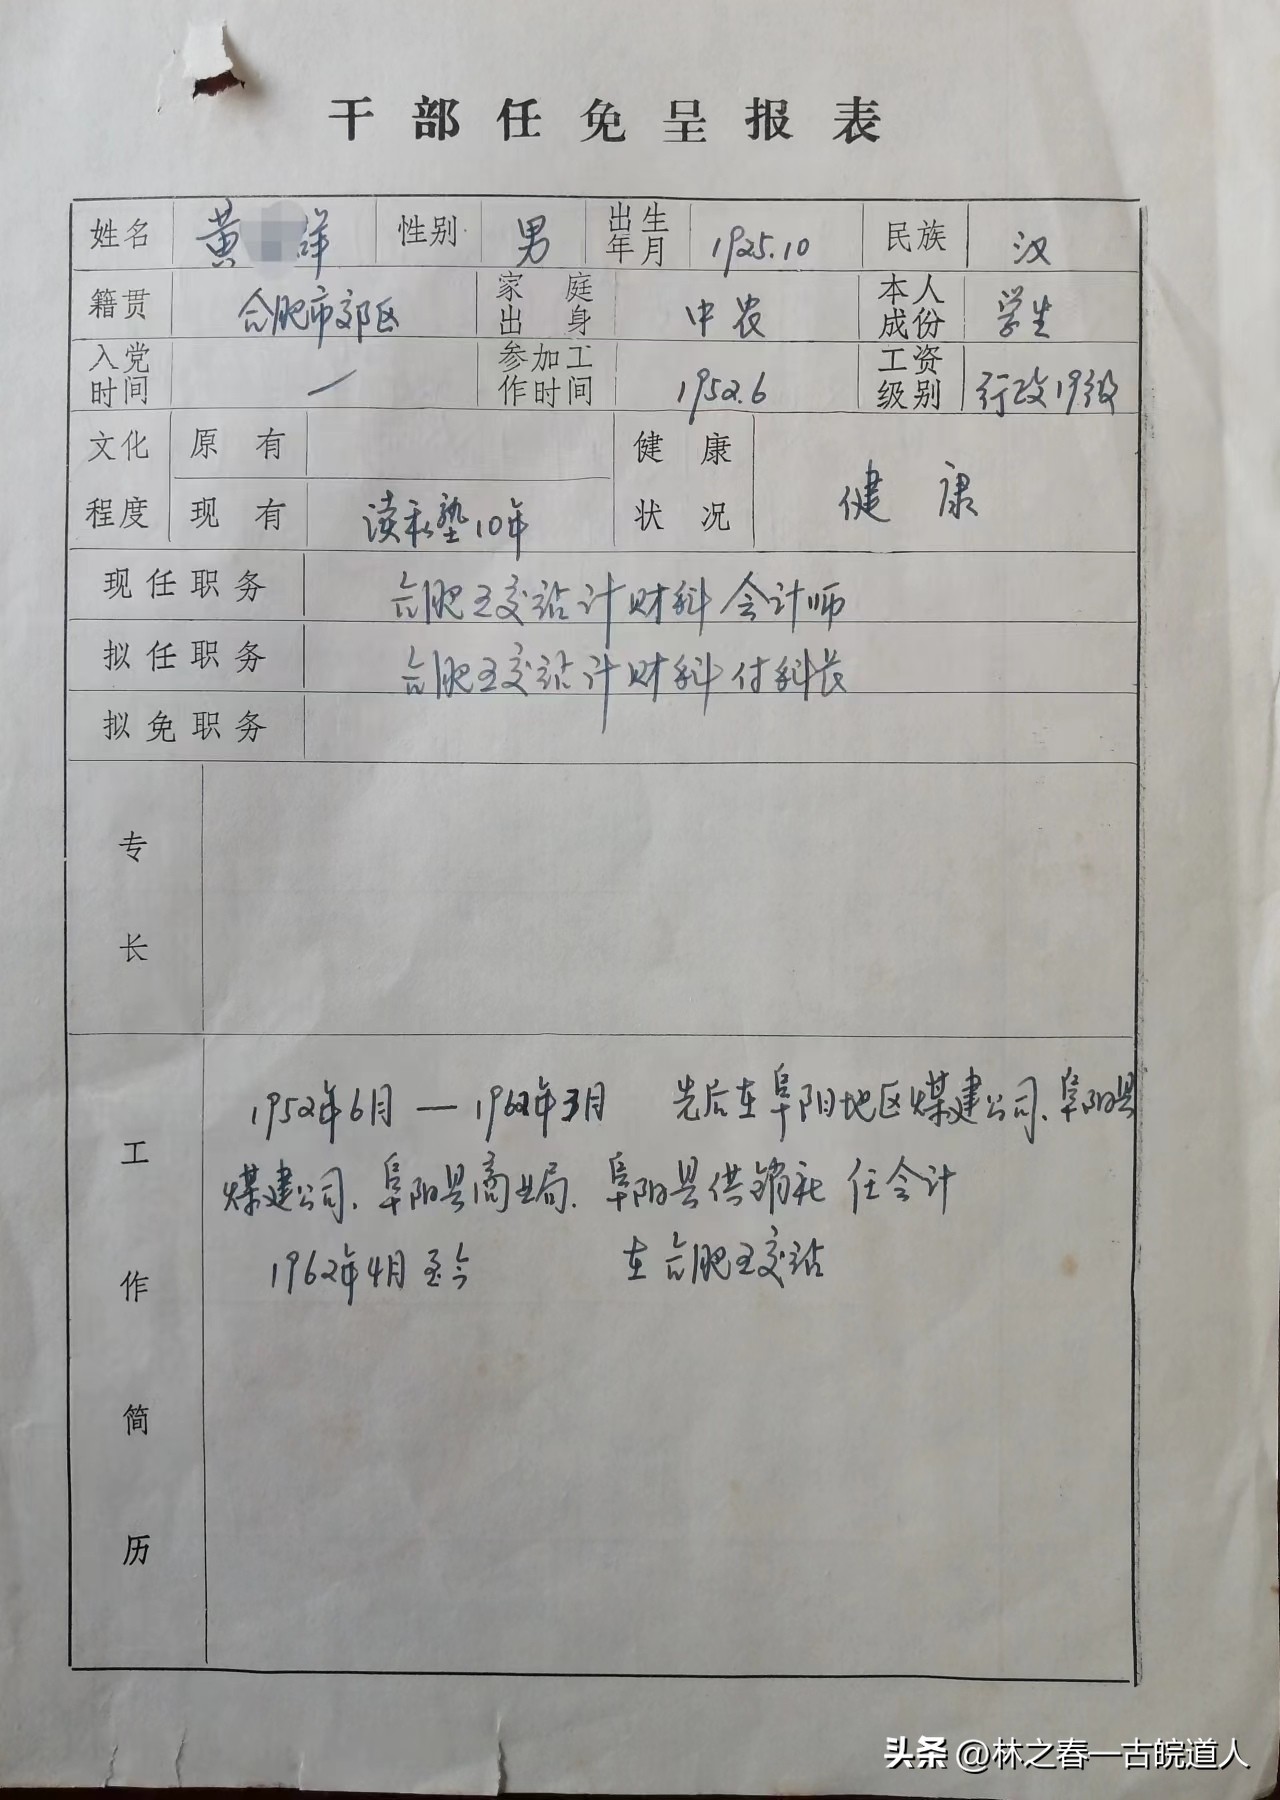 干部任免呈报表
姓名 黄 祥 性别 男 出生年月 1925.10 民族 汉
籍贯 合肥市郊区 家庭出身 中农 本人成份 学生
入党时间 — 参加工作时间 1952.6 工资级别 行政19级
文化程度 原有 健康状况 健康
现有 读私塾10年
现任职务 合肥五交站计财科会计师
拟任职务 合肥五交站计财科付科长
拟免职务
专长
工作简历
1952年6月—1962年3月 先后在阜阳地区煤建公司、阜阳县
煤建公司、阜阳县商业局、阜阳县供销社任会计
1962年4月至今 在合肥五交站
头条 @林之春一古皖道人